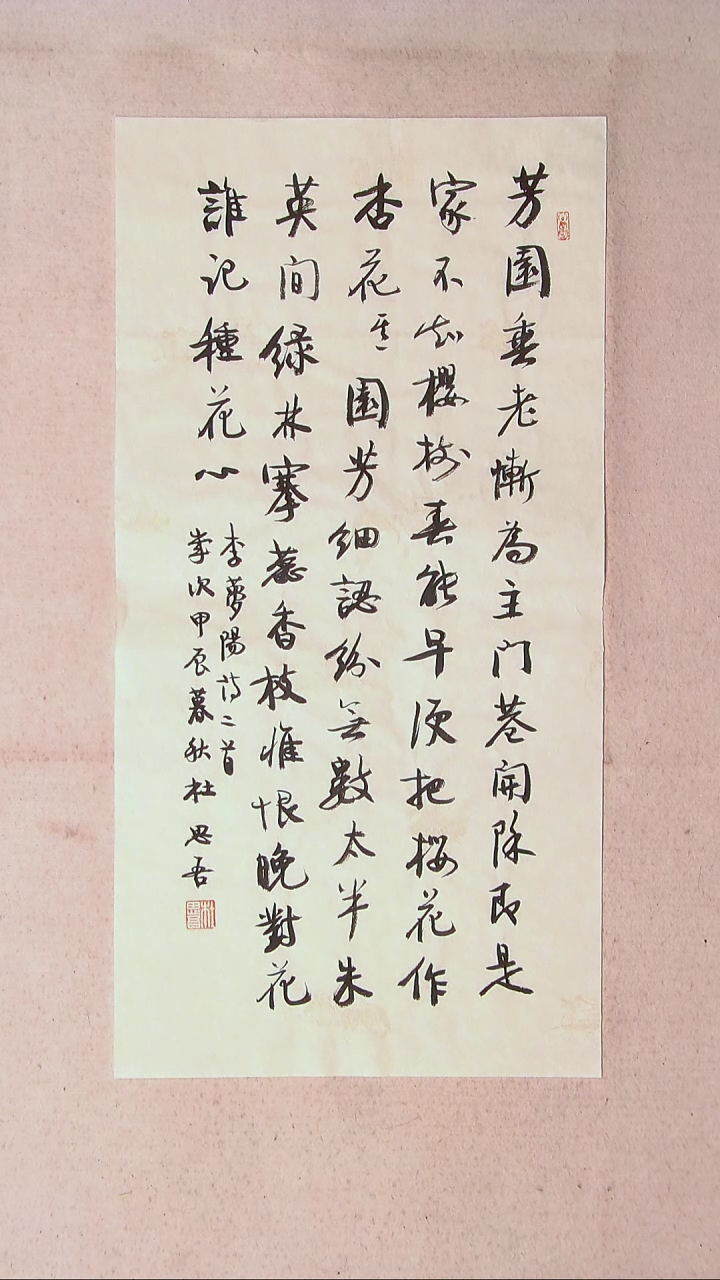 芳園垂老慚為主門巷開除即是
家不知櫻樹春能早便把櫻花作
杏花其二園芳細認紛無數太半朱
英間緑林搴蕊香枝惟恨晚對花
誰記種花心
李夢陽詩二首
歲次甲辰暮秋杜思吾